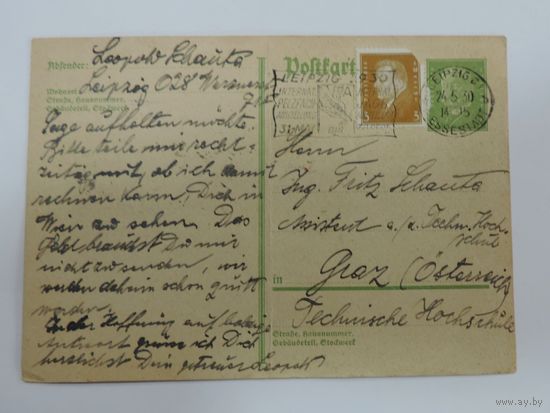 Absender: Leopold Schauta
Leipzig O28
Wohnort
Straße, Hausnummer,
Gebäudeteil, Stockwerk
Tage aufhalten möchte.
Bitte teile mir recht-
zeitig mit, ob ich damit
rechnen kann, Dich in
Wien zu sehen. Das
Geld brauchst Du mir
nicht zu senden, wir
werden daheim schon quitt
werden.
In der Hoffnung auf baldige
Antwort grüsse ich Dich
herzlichst Dein getreuer Leopold
Postkarte
LEIPZIG 1930
INTERNAT.
PELZFACH
AUSSTELLUNG
31. MAI
5 5
LEIPZIG
24.5.30
MESSESTADT
Herrn
Ing. Fritz Schauta
Assistent a./d. Techn. Hoch-
schule
in Graz (Österreich)
Technische Hochschule
Straße, Hausnummer,
Gebäudeteil, Stockwerk
www.ay.by